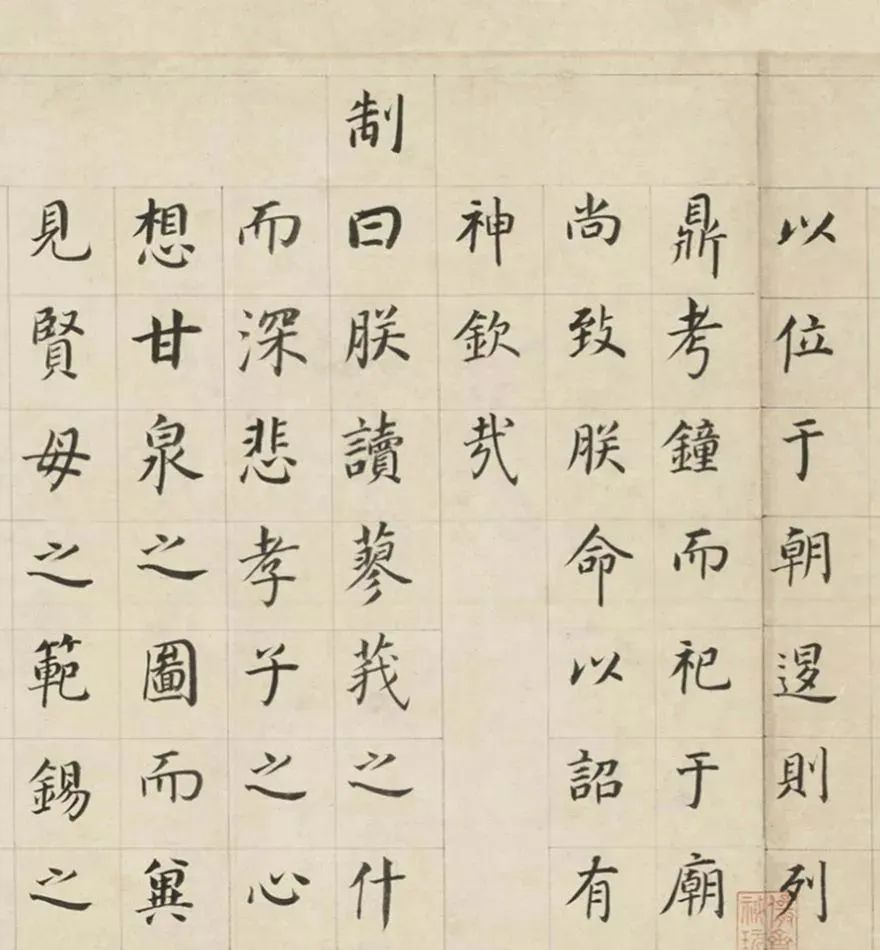 以位于朝逻则列
鼎考鐘而祀于廟
尚致朕命以詔有
神欽哉
制曰朕讀蓼莪之什
而深悲孝子之心
想甘泉之圖而冀
見賢母之範錫之